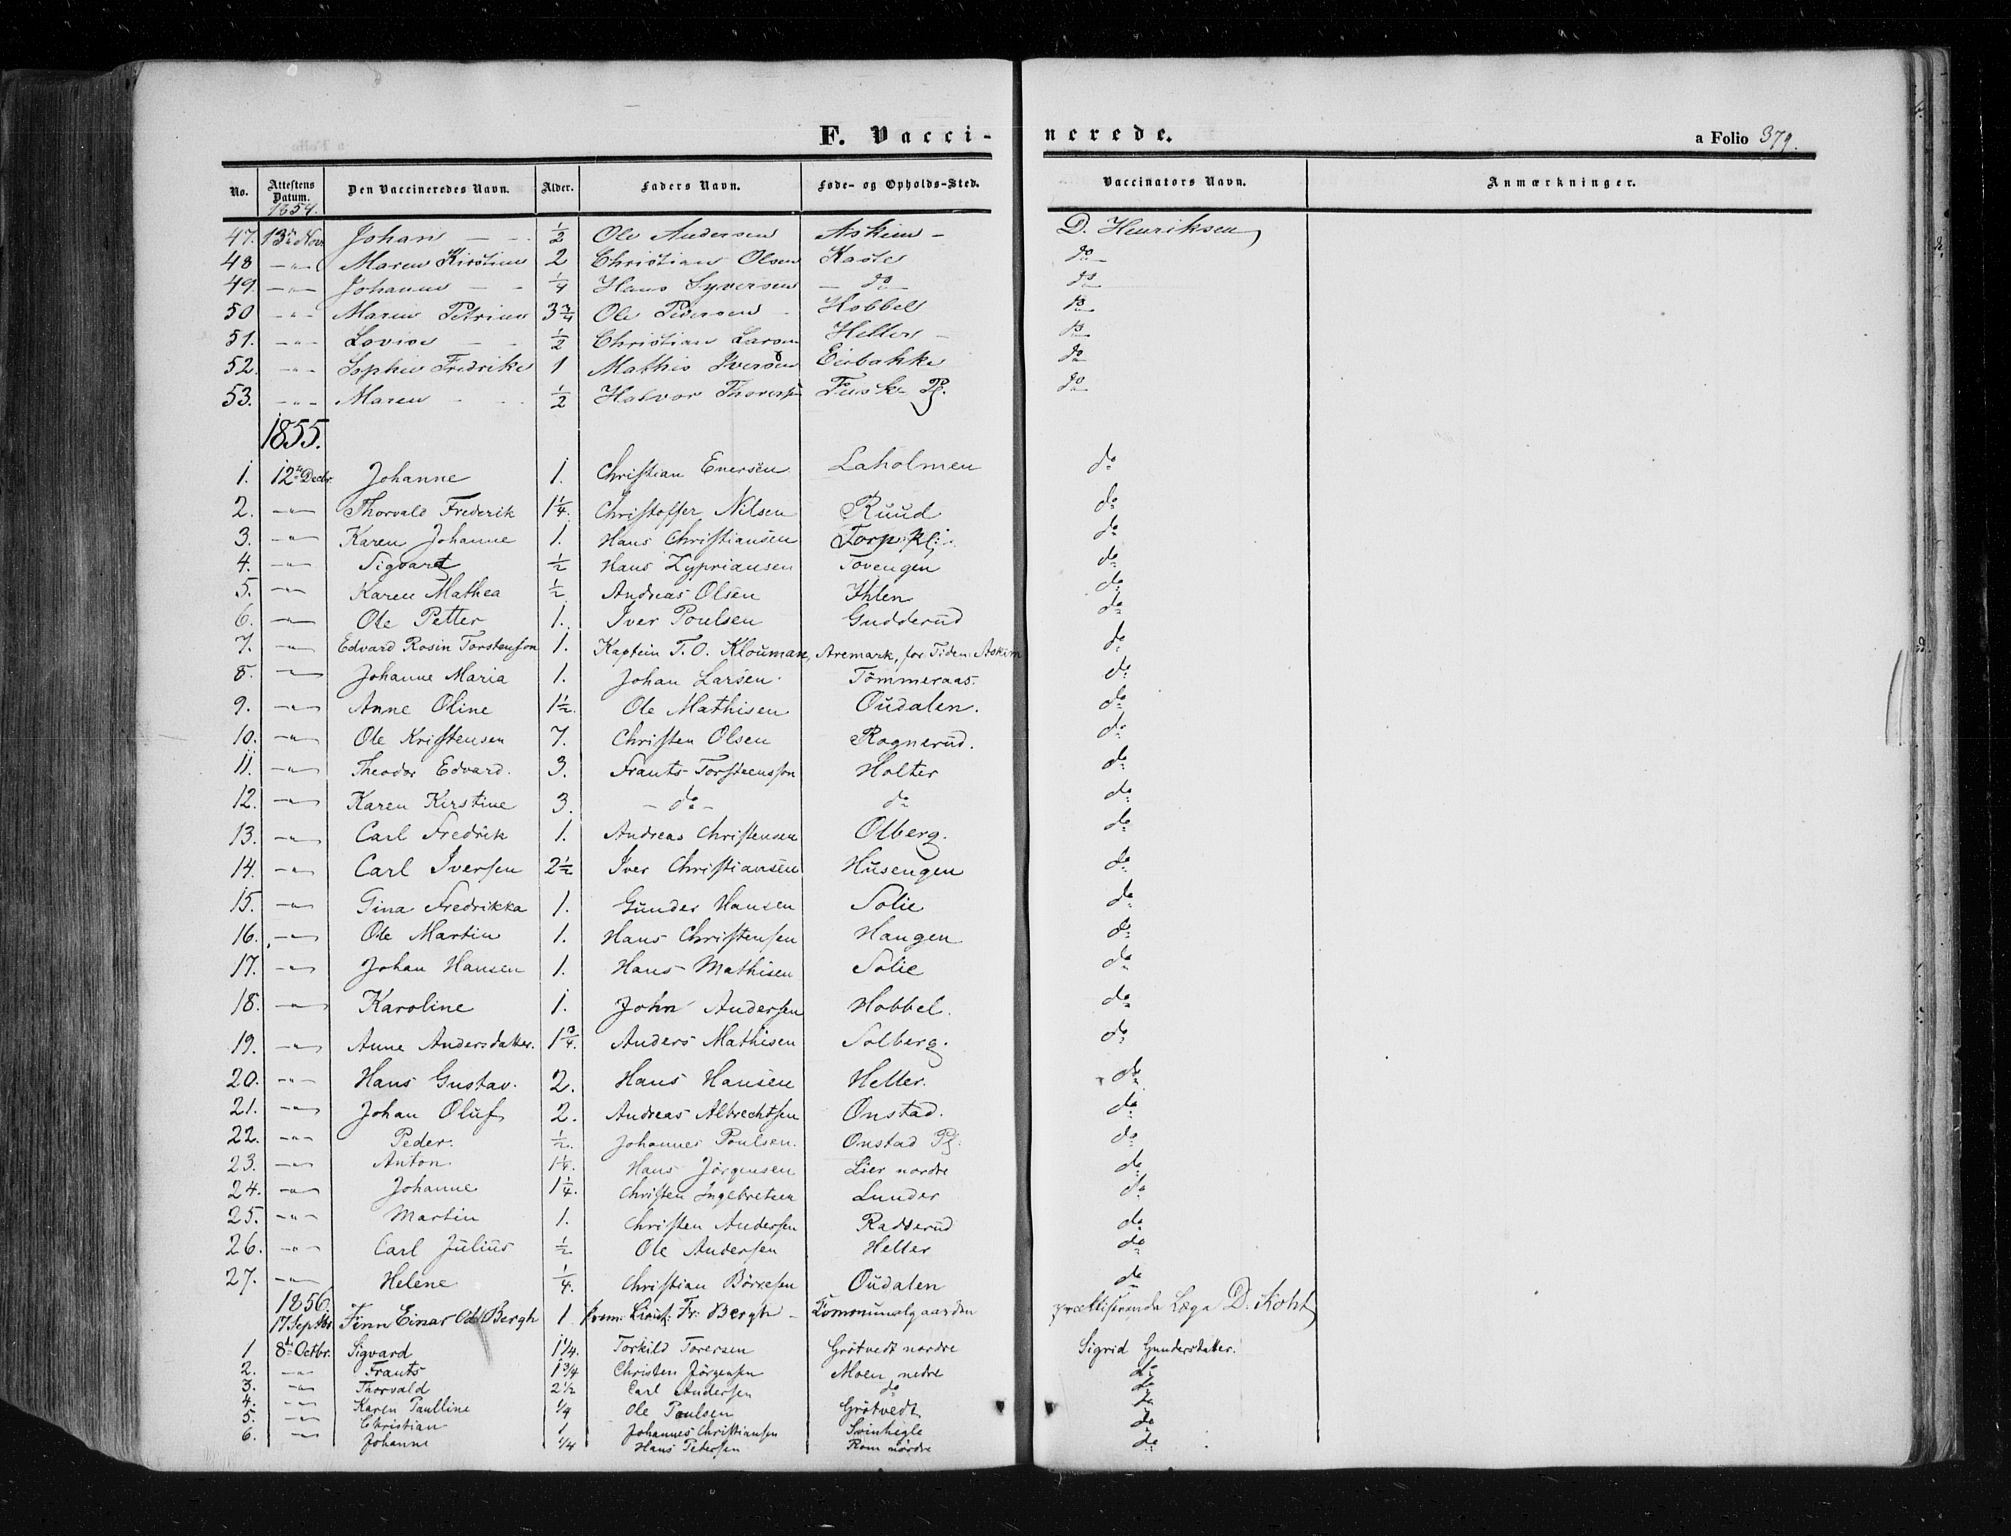 F. Vacci- nerede. a Folio 379.
No. Attestens Datum. Den Vaccineredes Navn. Alder. Faders Navn. Føde- og Opholds-Sted. Vaccinators Navn. Anmærkninger.
1854.
47. 13de Novr Johan - - 1/2 Ole Andersen Askim - D. Henriksen
48 -"- Maren Kirstine 2 Christian Olsen do
49. -"- Johanne - - 1/4 Hans Syversen - do - do
50 -"- Maren Petrine 3 3/4 Ole Pedersen - Hobbel do
51. -"- Lovise - - 1/2 Christian Larsen Heller - do
52. -"- Sophie Fredrikke 1 Mathis Iversen Eidbakke do
53. -"- Maren - - 1/2 Halvor Thoresen Fusk Pl. do
1855.
1. 12te Decbr. Johanne 1. Christian Enersen Laholmen do
2. -"- Thorvald Frederik 1 1/4. Christoffer Nilsen Ruud do
3. -"- Karen Johanne 1. Hans Christiansen Torp Pl: do
4. -"- Sigvart 1/2 Hans Zypriansen Tovengen do
5. -"- Karen Mathea 1/2 Andreas Olsen Ihlen do
6. -"- Ole Petter 1. Iver Poulsen Gudderud do
7. -"- Edvard Rosin Torstenson 1. Kaptein T. O. Klouman, Aremark, for Tiden Askim do
8. -"- Johanne Maria 1. Johan Larsen. Tömmeraas. do
9. -"- Anne Oline 1 1/2. Ole Mathisen Oudalen. do
10. -"- Ole Kristensen 7. Christen Olsen Rognerud. do
11. -"- Theodor Edvard. 3. Frants Torsteensson Holter do
12. -"- Karen Kirstine 3. - do - do do
13. -"- Carl Fredrik 1. Andreas Christensen Olberg. do
14. -"- Carl Iversen 2 1/2 Iver Christiansen Husengen do
15. -"- Gina Fredrikka 1. Gunder Hansen Solie do
16. -"- Ole Martin 1. Hans Christensen Haugen do
17. -"- Johan Hansen 1. Hans Mathisen Solie do
18. -"- Karoline 1. John Andersen Hobbel. do
19. -"- Anne Andersdatter. 1 3/4. Anders Mathisen Solberg. do
20. -"- Hans Gustav. 2. Hans Hansen Heller. do
21. -"- Johan Oluf 2. Andreas Albrechtsen Onstad. do
22. -"- Peder. 1/2. Johannes Poulsen. Onstad Pl. do
23. -"- Anton 1 1/4. Hans Jörgensen Lier nordre do
24. -"- Johanne 1 1/4. Christen Ingebretsen Lunder do
25. -"- Martin 1. Christen Andersen Radderud do
26. -"- Carl Julius 1/2 Ole Andersen Heller do
27. -"- Helene 1/4. Christian Börresen Oudalen do
1856.
17 Septbr. Finn Einar Od Bergh 1 Prem: Lieut: Fr: Bergh - Communalgaarden practiserende Læge D. Koht
1 8de Octbr. Sigvard 1 1/4. Torkild Toresen Grötvedt nordre Sigrid Gundersdatter.
2. -"- Frants 1 3/4 Christen Jörgensen Moen nedre do
3. -"- Thorvald 2 1/2 Carl Andersen do do
4. -"- Karen Paulline 1/4 Ole Poulsen Grötvedt do
5. -"- Christian 1 Johannes Christiansen Svinhigle do
6. -"- Johanne 1/4 Hans Petersen Rom nördre do